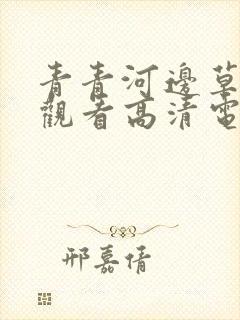 青青河邊草
觀看高清電
邢嘉倩